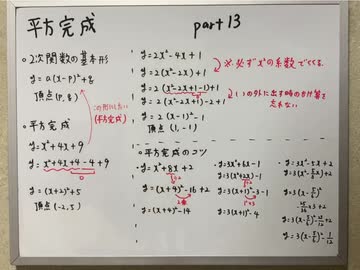 平方完成
part 13
○2次関数の基本形
y=a(x-p)²+q
頂点(p,q)
この形にしたい
(平方完成)
○平方完成
y=x²+4x+9
y=x²+4x+4-4+9
0
y=(x+2)²+5
頂点(-2,5)
y=2x²-4x+1
y=2(x²-2x)+1
※必ずx²の係数でくくる。
y=2(x²-2x+1-1)+1
y=2(x²-2x+1)-2+1
( )の外に出す時のかけ算を
忘れない
y=2(x-1)²-1
頂点(1,-1)
○平方完成のコツ
・y=x²+8x+2
÷2
y=(x+4)²-16+2
2乗
y=(x+4)²-14
・y=3x²+6x-1
y=3(x²+2x)-1
÷2
y=3(x+1)²-3-1
y=3(x+1)²-4
・y=3x²-5x+2
y=3(x²-5/3x)+2
y=3(x-5/6)²
-25/36×3+2
y=3(x-5/6)²-25/12+2
y=3(x-5/6)²-1/12